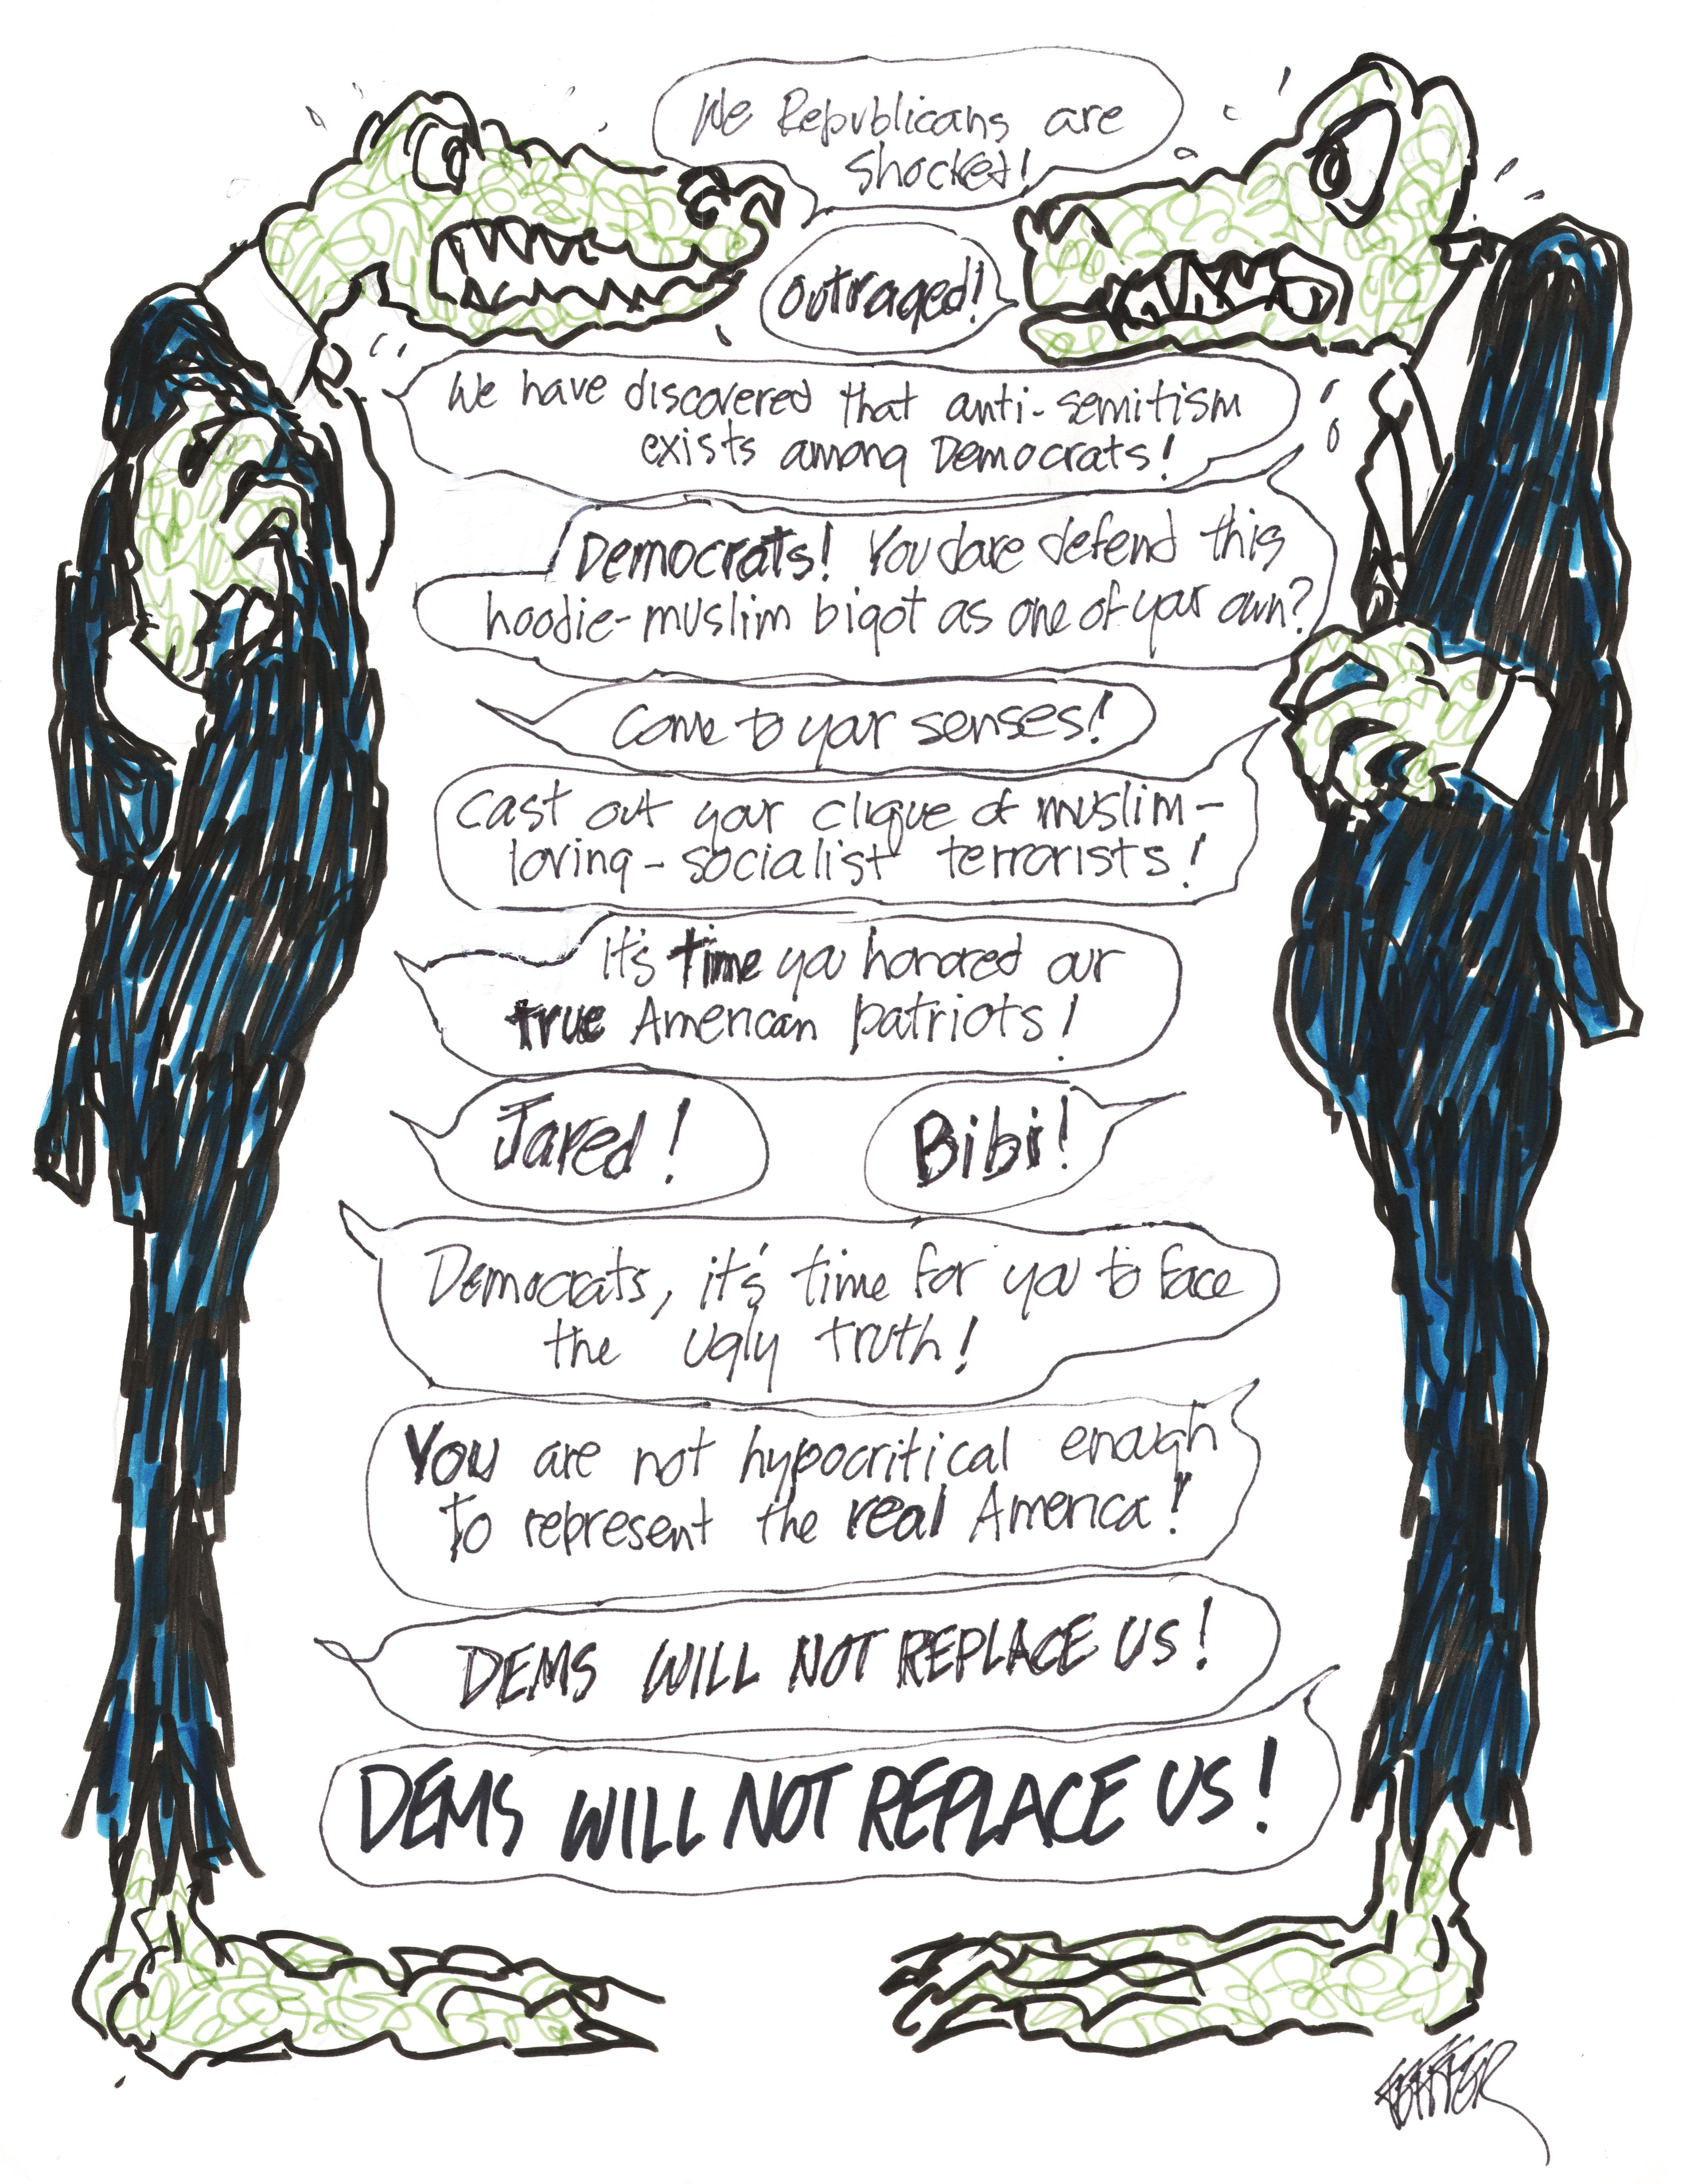 We Republicans are
shocked!
outraged!
We have discovered that anti-semitism
exists among Democrats!
Democrats! You dare defend this
hoodie-muslim bigot as one of your own?
Come to your senses!
Cast out your clique of muslim-
loving-socialist terrorists!
It's time you honored our
true American patriots!
Jared!
Bibi!
Democrats, it's time for you to face
the ugly truth!
You are not hypocritical enough
to represent the real America!
DEMS WILL NOT REPLACE US!
DEMS WILL NOT REPLACE US!
FEIFFER